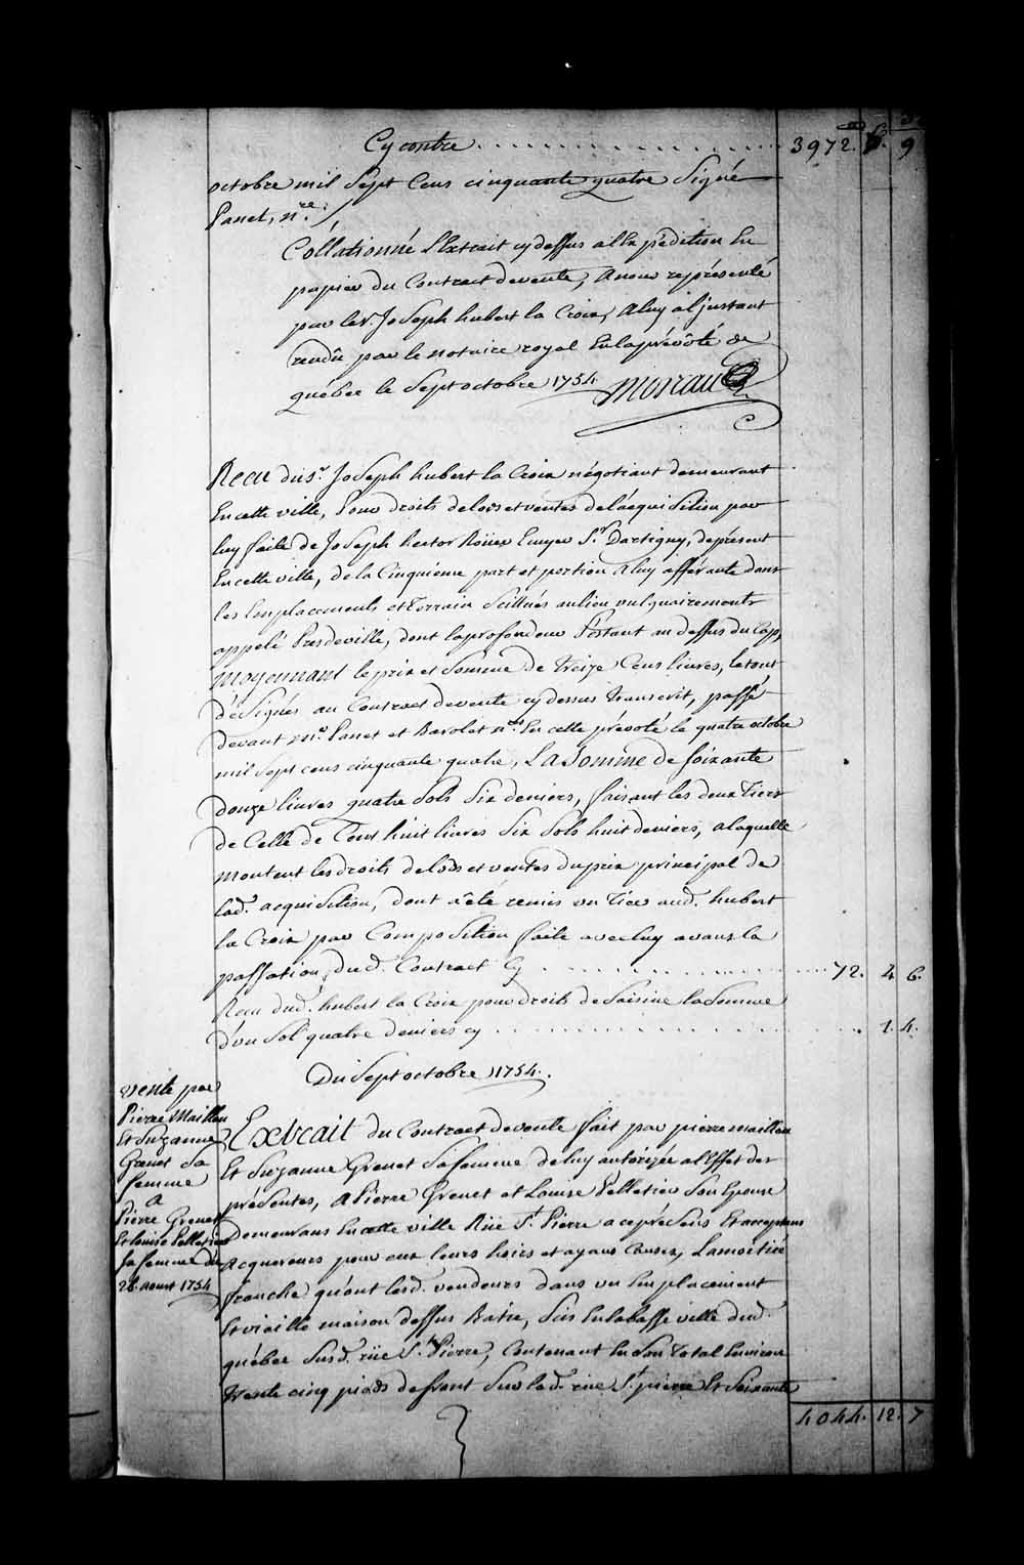 Cy contre . . . . . . . . . . . . . . . 3972. 6. 9
octobre mil Sept Cens cinquante quatre Signé
Panet, nre. /
Collationné l'Extrait cy dessus a l'Expédition En
papier du Contract de vente, a nous représenté
par le sr. Joseph hubert la Croix, a luy a l'jnstant
rendüe par le notaire royal En la prévôté de
québec le Sept octobre 1754. Moreau
Recu du sr. Joseph hubert la Croix négotiant demeurant
En cette ville, pour droits de lods et ventes de l'acquisition par
luy faite de Joseph hector Roüer Ecuyer Sr. Dartigny, de présent
En cette ville, de la Cinquieme part et portion a luy afférante dans
les Emplacements et Terrain Scittués au lieu vulgairement
appelé Presdeville, dont la profondeur S'Etant au dessus du Cap,
moyennant le prix et Somme de Treize Cens livres, le tout
désigné au Contract de vente cy dessus transcrit, passé
devant me. Panet et Barolet nres. En cette prévoté le quatre octobre
mil Sept cens cinquante quatre, La Somme de soixante
douze livres quatre Sols Six deniers, faisant les deux Tiers
de Celle de Cent huit livres Six Sols huit deniers, a laquelle
montent les droits de lods et ventes du prix principal de
lad. acquisition, dont a été remis un Tiers aud. hubert
la Croix par Composition faite avec luy avant la
passation dud. Contract Cy . . . . . . . . . . . . 72. 4. 6.
Recu dud. hubert la Croix pour droits de Saisine la Somme
d'un Sol quatre deniers cy . . . . . . . . . . . . . 1. 4.
Du Sept octobre 1754.
vente par
Pierre Maillou
Et Suzanne
Grenet Sa
femme
a
Pierre Grenet
Et louise Pelletier
sa femme du
28. aoust 1754
Extrait du Contract de vente fait par pierre maillou
Et Suzanne Grenet Sa femme de luy autorizée a l'Effet des
présentes, a Pierre Grenet et Louise Pelletier Son Epouse
Demeurans En cette ville Rüe St. Pierre a ce présens Et acceptans
acquereurs pour eux leurs hoirs et ayans Causes, La moitié
franche qu'ont lesd. vendeurs dans un Emplacement
Et vieille maison dessus Batie, Scis En la basse ville dud.
québec Susd. rüe St. Pierre, Contenant En Son Total Environ
trente cinq pieds de front Sur lad. rüe St. pierre Et Soixante
4044. 12. 7